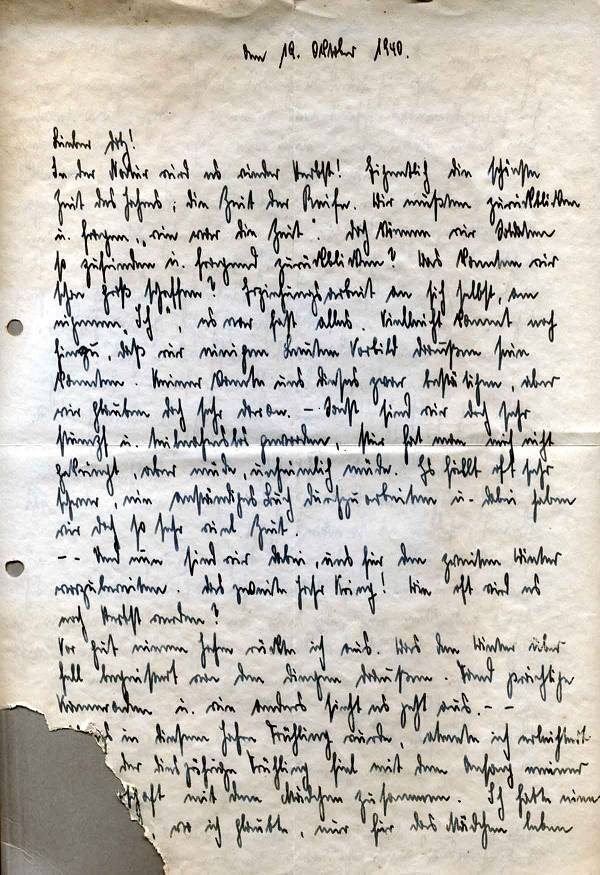 den 19. Oktober 1940.
Lieber
In der Natur wird es wieder Herbst! Eigentlich die schönste
Zeit des Jahres; die Zeit der Reife. Wir müßten zurückblicken
u. fragen, „wie war die Zeit“. Doch können wir Soldaten
so zufrieden u. fragend zurückblicken? Was konnten wir
schon groß schaffen? Erziehungsarbeit an sich selbst, am
eigenen „Ich“, es war fast alles. Vielleicht kommt noch
hinzu, daß wir einigen Leuten Vorbild draußen sein
konnten. Keiner konnte uns dieses zwar bestätigen, aber
wir glauben doch sehr daran. – Sonst sind wir doch sehr
stumpf u. teilnahmslos geworden, stur hat man mich nicht
gekriegt, aber müde, unheimlich müde. Es fällt oft sehr
schwer, ein anständiges Buch durchzuarbeiten u. dabei haben
wir doch so sehr viel Zeit.
–– Und nun sind wir dabei, uns für den zweiten Winter
vorzubereiten. Das zweite Jahr Krieg! Wie oft wird es
noch Herbst werden?
Vor gut einem Jahre rückte ich aus. War den Winter über
voll begeistert von den Dingen draußen. Fand prächtige
Kameraden u. wie anders sieht es jetzt aus. ––
es in diesem Jahre Frühling wurde, atmete ich erleichtert
der diesjährige Frühling fiel mit dem Anfang meiner
schaft mit dem Mädchen zusammen. Ich hatte eine
, wo ich glaubte, nur für das Mädchen leben